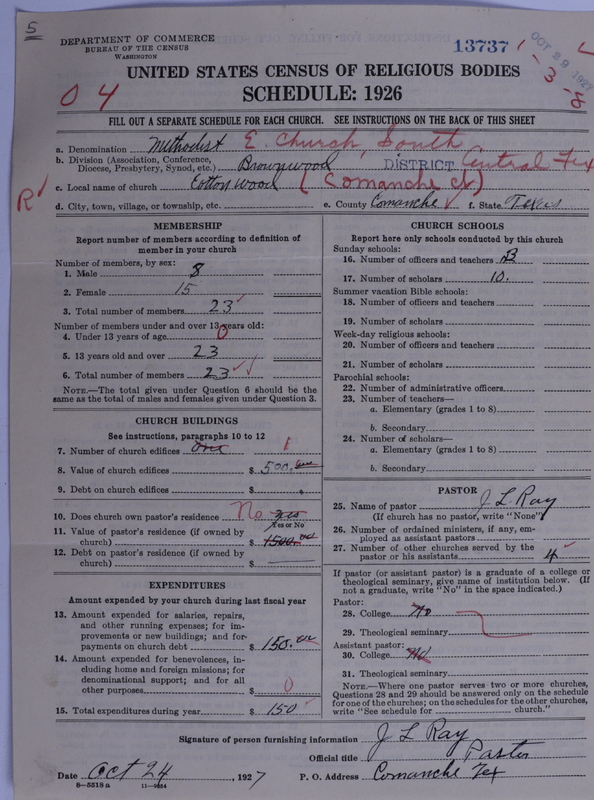 5
DEPARTMENT OF COMMERCE
BUREAU OF THE CENSUS
WASHINGTON
13737
OCT 29 1927
1-3-8
UNITED STATES CENSUS OF RELIGIOUS BODIES
04
SCHEDULE: 1926
FILL OUT A SEPARATE SCHEDULE FOR EACH CHURCH. SEE INSTRUCTIONS ON THE BACK OF THIS SHEET
a. Denomination Methodist E. Church, South
b. Division (Association, Conference, Diocese, Presbytery, Synod, etc.) Brownwood DISTRICT Central Tex
c. Local name of church Cotton wood (Comanche ct)
R
d. City, town, village, or township, etc. e. County Comanche f. State Texas
MEMBERSHIP
Report number of members according to definition of
member in your church
Number of members, by sex:
1. Male 8
2. Female 15
3. Total number of members 23
Number of members under and over 13 years old:
4. Under 13 years of age 0
5. 13 years old and over 23
6. Total number of members 23
NOTE.—The total given under Question 6 should be the
same as the total of males and females given under Question 3.
CHURCH BUILDINGS
See instructions, paragraphs 10 to 12
7. Number of church edifices one 1
8. Value of church edifices $ 500.
9. Debt on church edifices $
10. Does church own pastor's residence No yes
Yes or No
11. Value of pastor's residence (if owned by
church) $ 1500.00
12. Debt on pastor's residence (if owned by
church) $
EXPENDITURES
Amount expended by your church during last fiscal year
13. Amount expended for salaries, repairs,
and other running expenses; for im-
provements or new buildings; and for
payments on church debt $ 150.00
14. Amount expended for benevolences, in-
cluding home and foreign missions; for
denominational support; and for all
other purposes $ 0
15. Total expenditures during year $ 150
CHURCH SCHOOLS
Report here only schools conducted by this church
Sunday schools:
16. Number of officers and teachers
17. Number of scholars 10.
Summer vacation Bible schools:
18. Number of officers and teachers
19. Number of scholars
Week-day religious schools:
20. Number of officers and teachers
21. Number of scholars
Parochial schools:
22. Number of administrative officers
23. Number of teachers—
a. Elementary (grades 1 to 8)
b. Secondary
24. Number of scholars—
a. Elementary (grades 1 to 8)
b. Secondary
PASTOR
25. Name of pastor J L Ray
(If church has no pastor, write "None")
26. Number of ordained ministers, if any, em-
ployed as assistant pastors
27. Number of other churches served by the
pastor or his assistants 4
If pastor (or assistant pastor) is a graduate of a college or
theological seminary, give name of institution below. (If
not a graduate, write "No" in the space indicated.)
Pastor:
28. College No
29. Theological seminary
Assistant pastor:
30. College No
31. Theological seminary
NOTE.—Where one pastor serves two or more churches,
Questions 28 and 29 should be answered only on the schedule
for one of the churches; on the schedules for the other churches,
write "See schedule for church."
Signature of person furnishing information J L Ray
Official title Pastor
Date Oct 24, 1927 P. O. Address Comanche Tex
8—5518 a